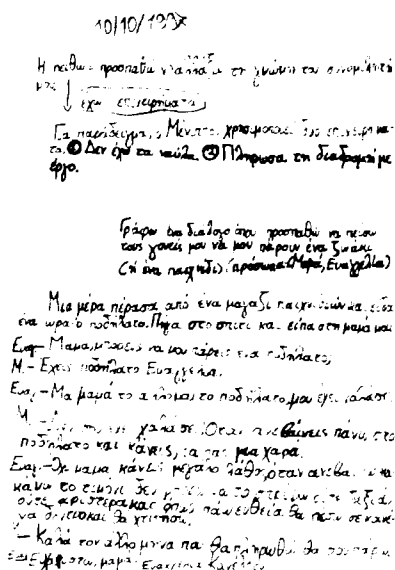 10/10/1997
Η πειθώ: προσπαθώ να αλλάξω τη γνώμη του συνομιλητή
μου
έχω επιχειρήματα
Για παράδειγμα, ο Μένιππος χρησιμοποιεί δύο επιχειρήμα-
τα. ① Δεν έχω τα ναύλα. ② Πλήρωσα τη διαδρομή με
έργο.
Γράφω ένα διάλογο όπου προσπαθώ να πείσω
τους γονείς μου να μου πάρουν ένα ζωάκι
(ή ένα παιχνίδι). πρόσωπα: (Μαμά, Ευαγγελία)
Μια μέρα πέρασα από ένα μαγαζί παιχνιδιών και είδα
ένα ωραίο ποδήλατο. Πήγα στο σπίτι και είπα στη μαμά μου
Ευαγ.- Μαμά, μπορείς να μου πάρεις ένα ποδήλατο;
Μ.- Έχεις ποδήλατο Ευαγγελία.
Ευαγ.- Μα μαμά το άλλο μου το ποδήλατο μου έχει χαλάσει.
Μ. χάλασε. Όταν ανεβαίνεις πάνω στο
ποδήλατο και κάνεις, μια χαρά.
Ευαγ- Όχι μαμά κάνεις μεγάλο λάθος, όταν ανεβαίνω και
κάνω το τιμόνι δεν ούτε δεξιά,
ούτε αριστερά και όπως πάω ευθεία θα πέσω σε κανένα
να θα χτυπήσω.
- Καλά τον άλλο μήνα που θα πληρωθώ θα σου πάρω.
Ευ. Ευχαριστώ, μαμά. Ευαγγελία